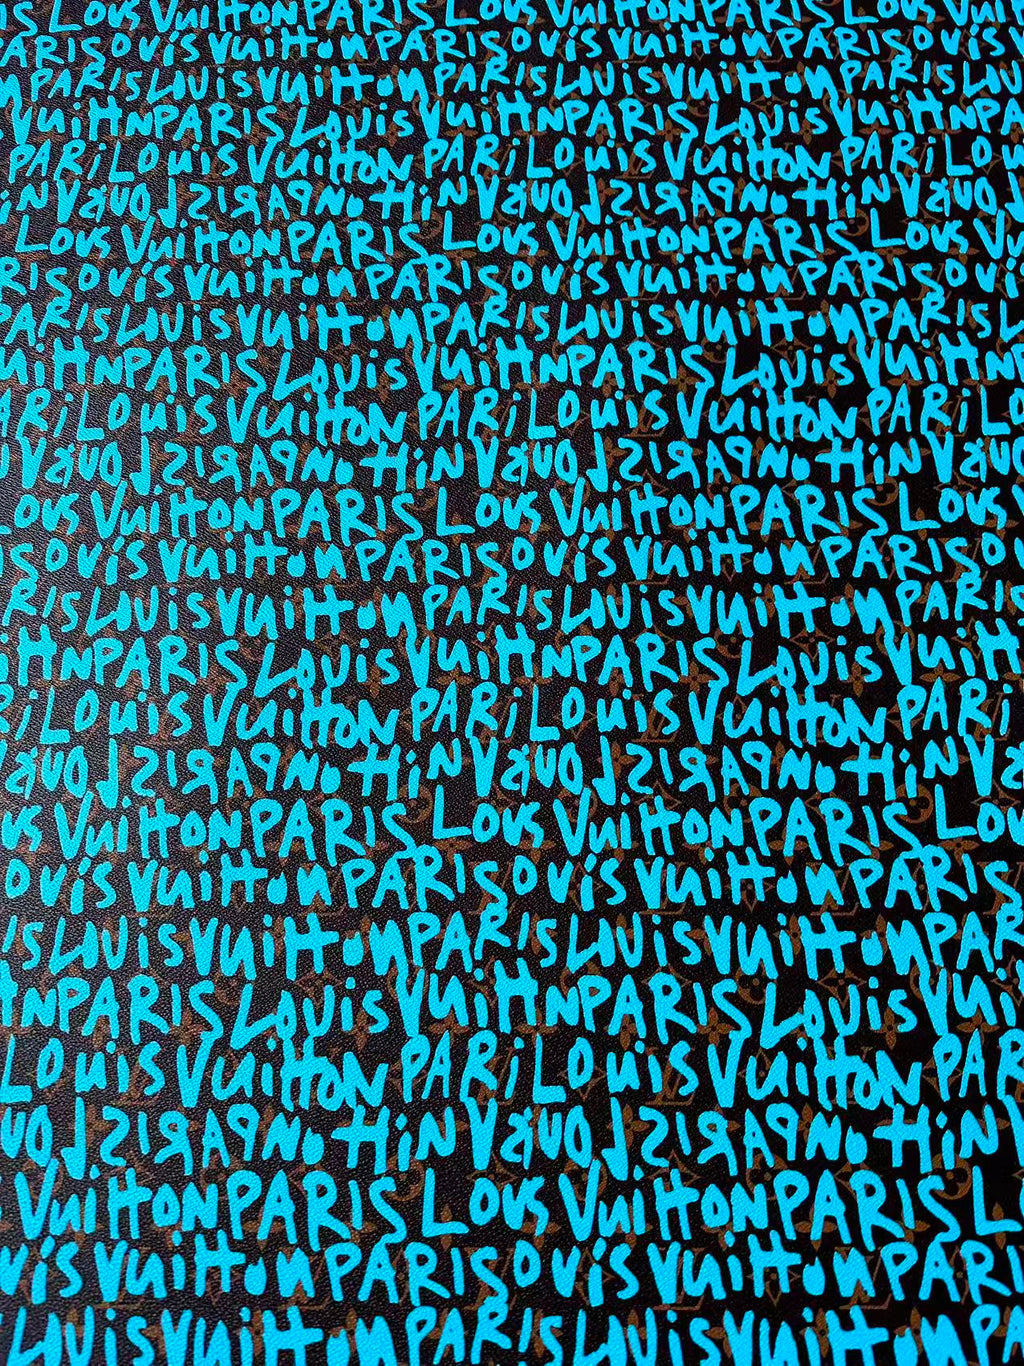 S LOUS VUITTON PARIS LOUS VUITTON PARIS LO
ARISOUIS VUITTON PARISOUIS VUITTON PARISOUIS V
N PARIS LOUIS VUITTON PARIS LOUIS VUITTON PARIS LOU
VUITTN PARIS LOUIS VUITTN PARIS LOUIS VUITTN PA
PARI LOUIS VUITTON PARI LOUIS VUITTON PARI LOU
LOUS VUITTON PARIS LOUS VUITTON PARIS LOUS VU
RISOUIS VUITTON PARISOUIS VUITTON PARISOUIS
PARIS LOUIS VUITTON PARIS LOUIS VUITTON PARIS L
UITTN PARIS LOUIS VUITTN PARIS LOUIS VUITTN P
ARI LOUIS VUITTON PARI LOUIS VUITTON PARI LO
LOUS VUITTON PARIS LOUS VUITTON PARIS LOUS V
SOUIS VUITTON PARISOUIS VUITTON PARISO
RIS LOUIS VUITTON PARIS LOUIS VUITTON PARIS
ITTN PARIS LOUIS VUITTN PARIS LOUIS VUITTN
RI LOUIS VUITTON PARI LOUIS VUITTON PARI
US VUITTON PARIS LOUS VUITTON PARIS LOU
OUIS VUITTON PARISOUIS VUITTON PARIS
IS LOUIS VUITTON PARIS LOUIS VUITTON PARIS
TN PARIS LOUIS VUITTN PARIS LOUIS VUI
LOUIS VUITTON PARI LOUIS VUITTON PARI
VUITTON PARIS LOUS VUITTON PARIS L
UIS VUITTON PARISOUIS VUITTON PARI
LOUIS VUITTON PARIS LOUIS VUITTON PARIS